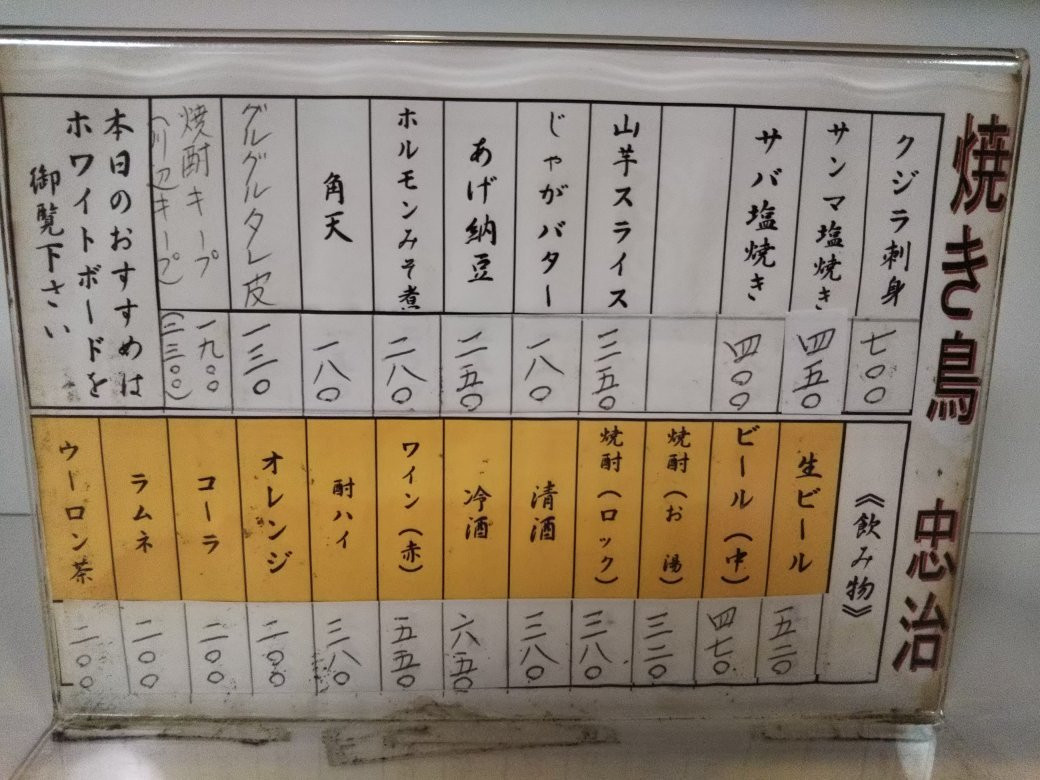 焼き鳥 忠治
クジラ刺身 七〇〇
サンマ塩焼き 四五〇
サバ塩焼き 四〇〇
山芋スライス 三五〇
じゃがバター 一八〇
あげ納豆 二五〇
ホルモンみそ煮 二八〇
角天 一八〇
グルグルタレ皮 一三〇
焼酎キープ 一九〇〇
(川辺キープ) (二三〇〇)
本日のおすすめは
ホワイトボードを
御覧下さい
《飲み物》
生ビール 五二〇
ビール(中) 四七〇
焼酎(お湯) 三二〇
焼酎(ロック) 三八〇
清酒 三八〇
冷酒 六五〇
ワイン(赤) 五五〇
酎ハイ 三八〇
オレンジ 二〇〇
コーラ 二〇〇
ラムネ 二〇〇
ウーロン茶 二〇〇